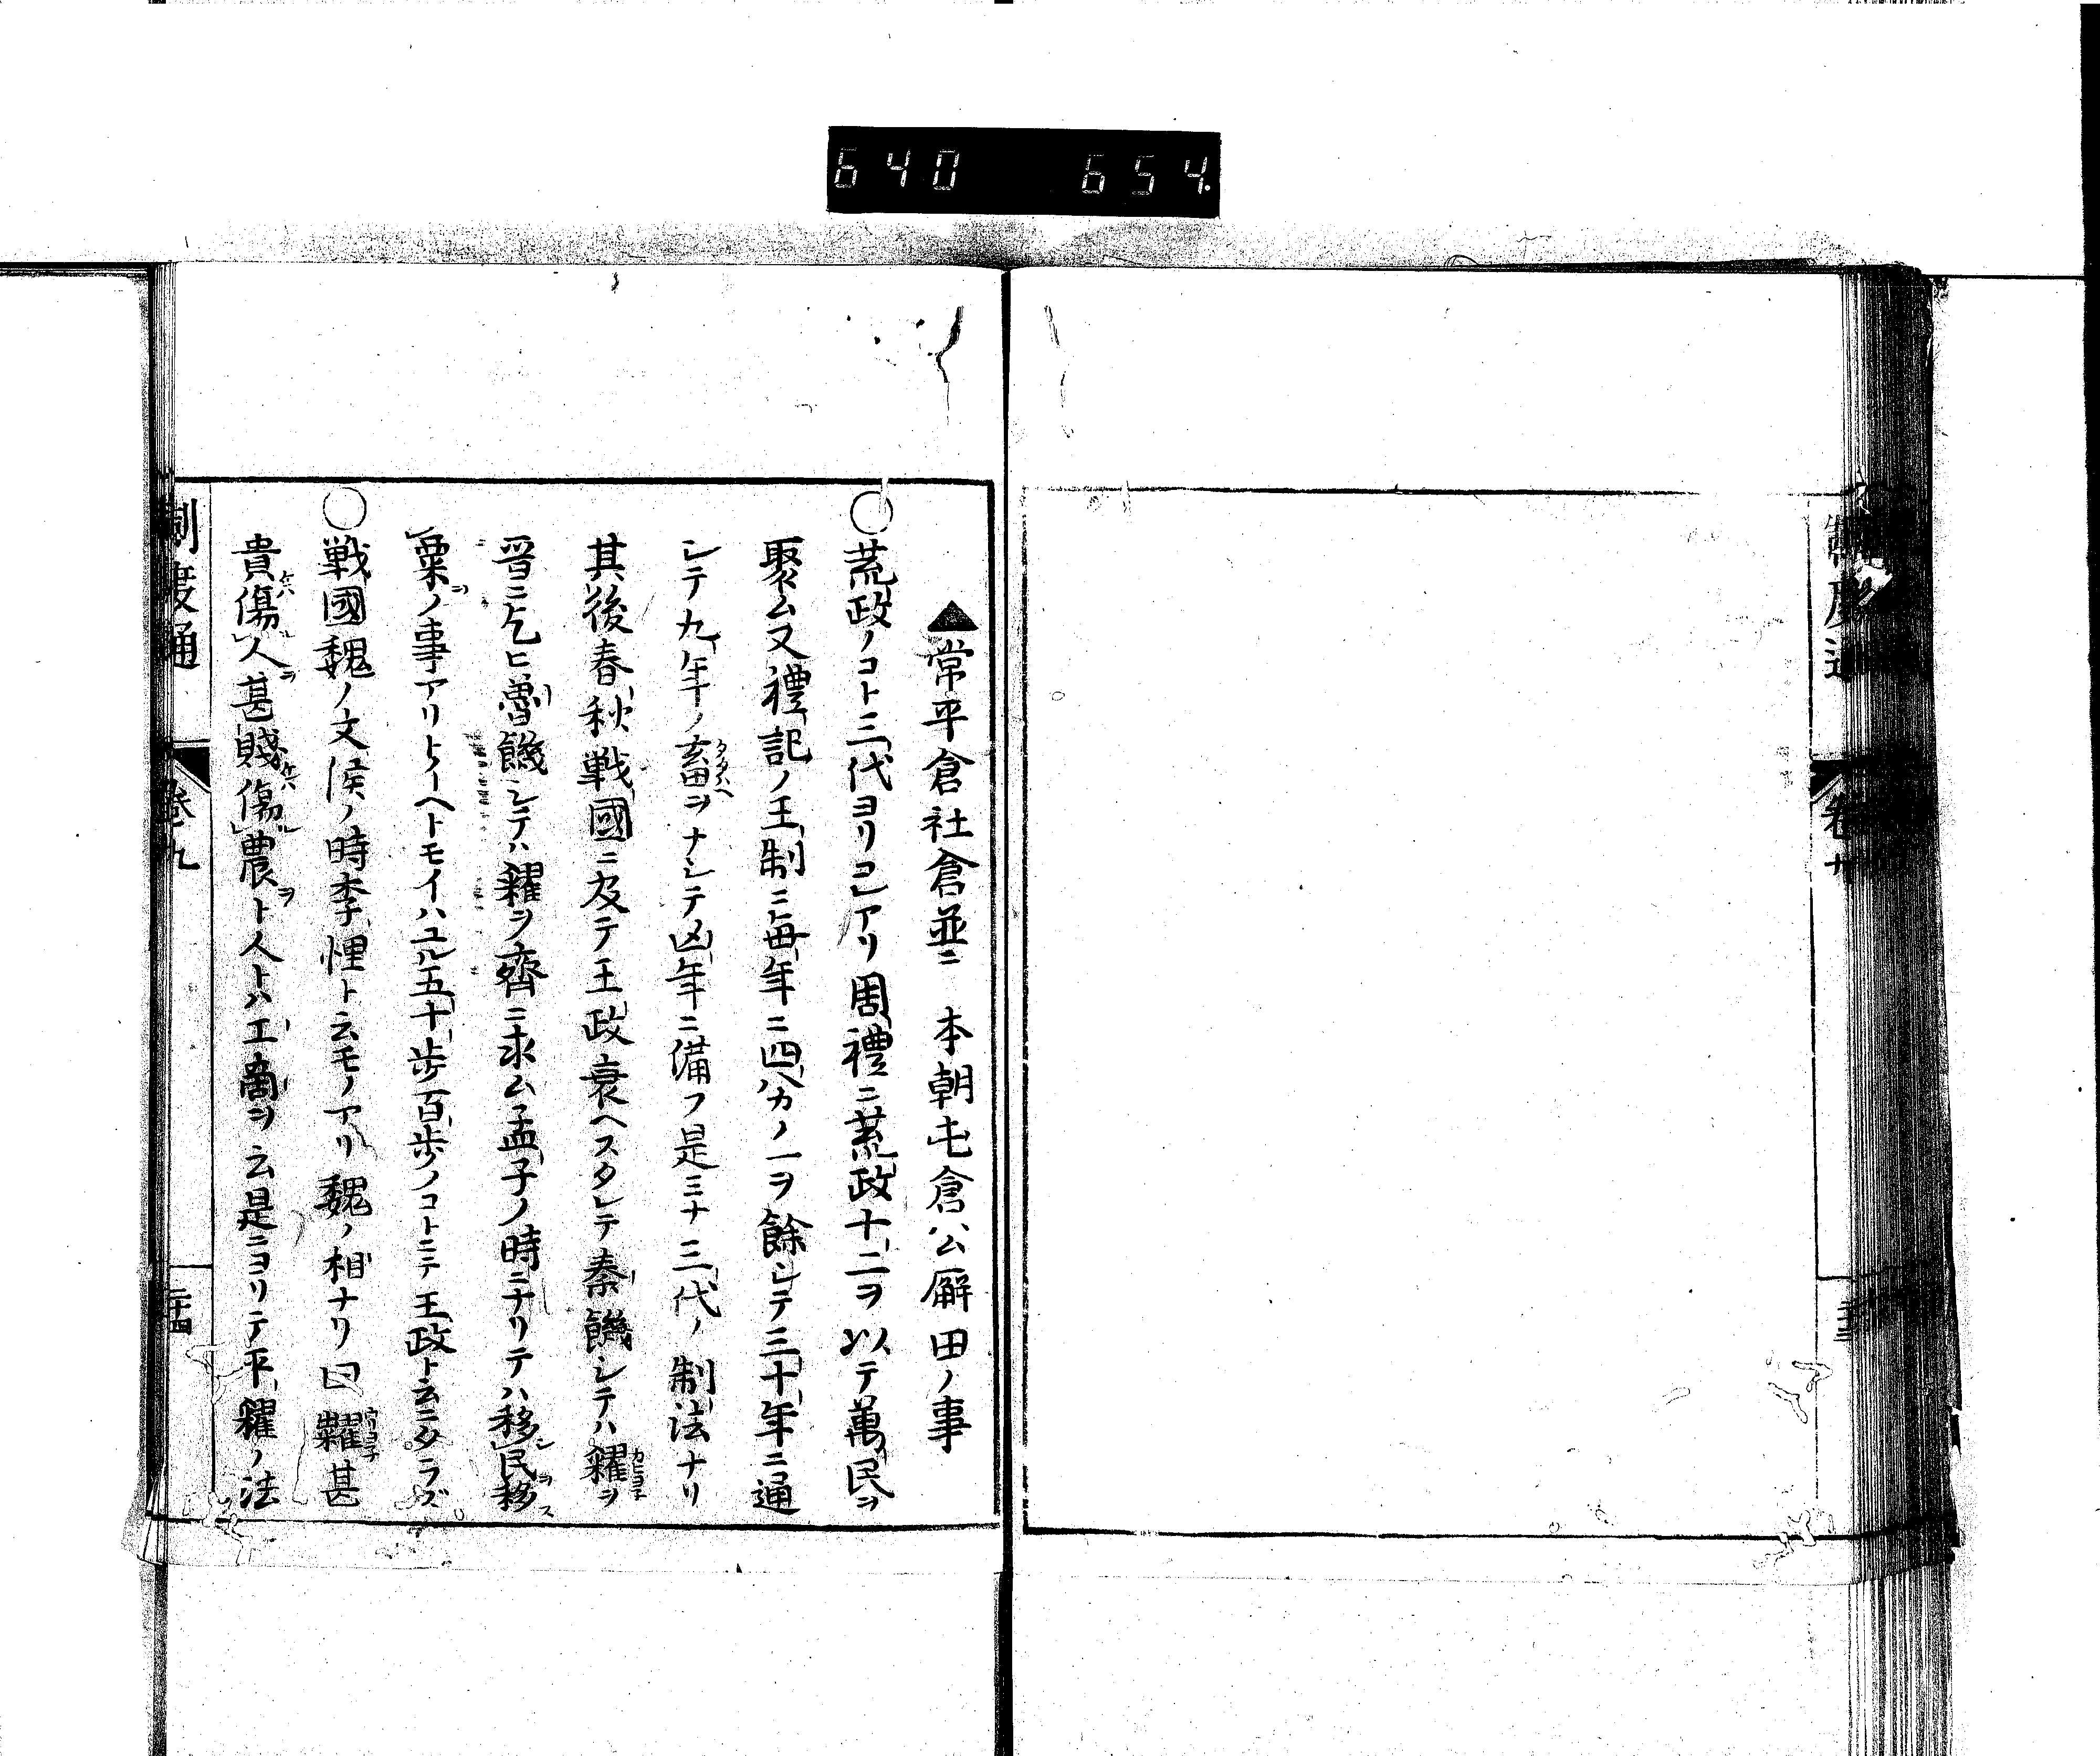 640 654.
制度通 卷九
▲常平倉社倉並ニ 本朝屯倉公廨田ノ事
○荒政ノコト三代ヨリコレアリ周禮ニ荒政十二ヲ以テ萬民ヲ
聚ム又禮記ノ王制ニ毎年ニ四分カノ一ヲ餘シテ三十年ニ通
シテ九年ノ畜ヲナシテ凶年ニ備フ是ミナ三代ノ制法ナリ
其後春秋戦國ニ及テ王政衰ヘスタレテ秦饑シテハ糴ヲ
晋ニ乞ヒ魯饑シテハ糴ヲ齊ニ求ム孟子ノ時ニナリテハ移民移
粟ノ事アリトイヘトモイハユル五十歩百歩ノコトニテ王政ト云ニタラズ
○戦國魏ノ文侯ノ時李悝ト云モノアリ魏ノ相ナリ曰糶甚
貴傷人甚賤傷農ト人トハ工商ヲ云是ニヨリテ平糴ノ法
制度通 卷九 二十四